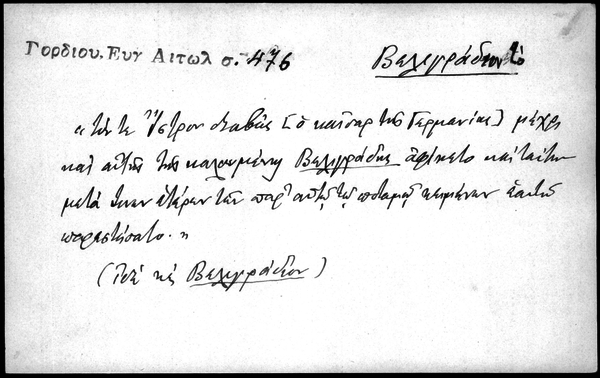 Γορδίου, Ευγ Αιτωλ σ. 476
Βελιγράδιον τὸ
« τόν τε Ἴστρον διαβὰς [ὁ καῖσαρ τῆς Γερμανίας] μέχρι
καὶ αὐτῆς τῆς καλουμένης Βελιγράδης ἀφίκετο καὶ ταύτην
μετά τινων ἑτέρων τῶν παρ' αὐτῷ τῷ ποταμῷ κειμένων ἑαυτῷ
παρεστήσατο. »
(Ἰδὲ κὲ Βελιγράδιον)